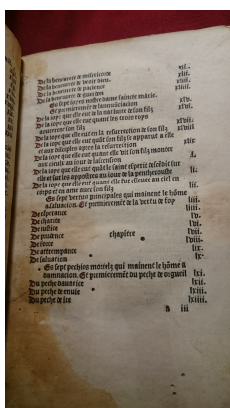 De la benneurete de misericorde xli.
De la benneurete de veoir dieu. xlii.
De la benneurete de pacience xliii.
De la benneurete de
Es sept ioyes nostre dame saincte marie.
Et premieremēt de la nunciacion xlv.
De la ioye que elle eut de la nat de son filz xlvi.
De la ioye que elle eut quant les troys roys
aourerent son filz xlvii.
De la ioye que elle eut en la resurrection de son filz xlviii.
De la ioye que elle eut quāt son filz se apparut a elle
et aux disciples apres la resurrection xlix
De la ioye que elle eut quant elle vit son filz monter
aux cieulx au iour de lascension l.
De la ioye que elle eut quāt le sainct esperit descēdit sur
elle et sur les apostres au iour de la penthecouste li.
De la ioye que elle eut quant elle fut esleuee au ciel en
corps et en ame auec son filz lii.
Es sept vertus principales qui mainent le hōme
a saluation. Et premieremēt de la vertu de foy liii.
De esperance liiii.
De charite lv.
De iustice lvi.
De prudence chapitre lvii.
De force lviii.
De attrempance lix.
De saluation lx.
Es sept pechies mortelz qui mainent le hōme a
damnacion. Et premieremēt du peche de orgueil lxi.
Du peche dauarice lxii.
Du peche de enuie lxiii.
Du peche de ire lxiiii.
a iii